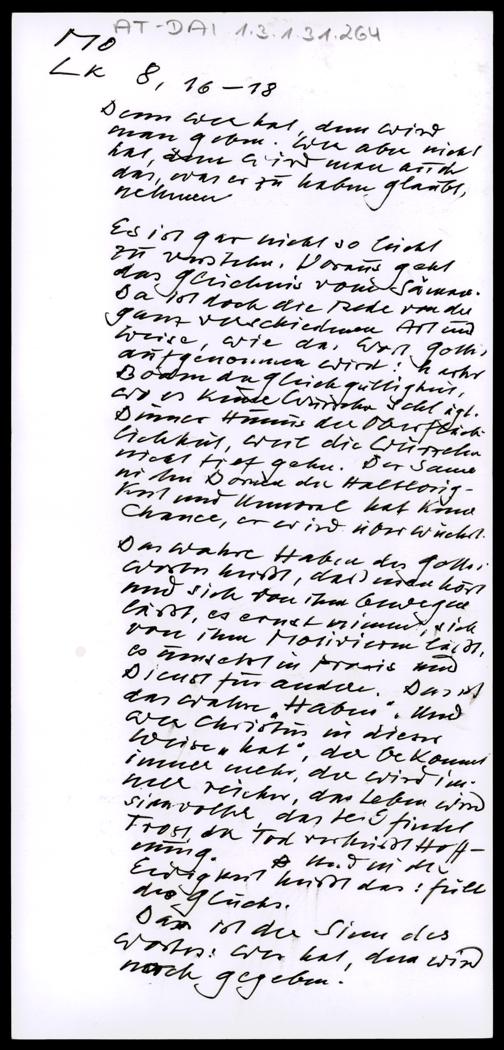 AT-DAI 1.3.1.31.264
Mo
Lk 8, 16-18
Denn wer hat, dem wird
man geben. Wer aber nicht
hat, dem wird man auch
das, was er zu haben glaubt,
nehmen
Es ist gar nicht so leicht
zu verstehn. Voraus geht
das Gleichnis vom Sämann.
Da ist doch die Rede von der
ganz verschiedenen Art und
Weise, wie das Wort Gottes
aufgenommen wird:
Boden der Gleichgültigkeit,
wo es keine Wurzeln schlägt.
Dünner Humus der Oberfläch-
lichkeit, weil die Wurzeln
nicht tief gehn. Der Same
in den Dornen der Haltlosig-
keit und Unmoral hat keine
Chance, er wird überwuchert.
Das wahre Haben des Gottes-
wortes heißt, dass man hört
und sich von ihm bewegen
läßt, es ernst nimmt, sich
von ihm motivieren läßt,
es umsetzt in Praxis und
Dienst für andere. Das ist
das wahre "Haben". Und
wer Christus in dieser
Weise "hat", der bekommt
immer mehr, der wird im-
mer reicher, das Leben wird
sinnvoller, das Leid findet
Trost der Tod verheißt Hoff-
nung. und in der
Ewigkeit heißt das: Fülle
des Glücks.
Das ist der Sinn des
Wortes: Wer hat, dem wird
noch gegeben.